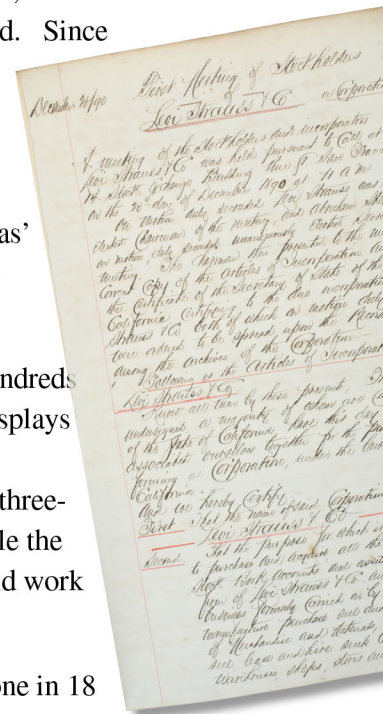 d. Since
as'
ndreds
splays
three-
le the
ld work
one in 18
December 20/90
First Meeting of Stockholders
of
Levi Strauss & Co a Corporation
A meeting of the Stockholders and incorporators
Levi Strauss & Co was held pursuant to Call at
Stock Exchange Building Pine St San Fran
on the 20th day of December 1890 at 11 A M
On motion duly seconded Levi Strauss was
Elected Chairman of the meeting and Abraham St
on motion, duly seconded unanimously Elected
meeting. The Chairman then presented to the me
Correct Copy of the articles of Incorporation
the Certificate of the Secretary of State of the
California Certifying to the due incorporation
Strauss & Co both of which on motion duly
were ordered to be spread upon the Records
among the archives of the Corporation
Following is the articles of Incorporat
Levi Strauss & Co
Know all men by these presents, Th
undersigned, a majority of whom are
of the State of California have this day
associated ourselves together for the
forming a Corporation, under the laws
California
And we hereby Certify
First That the name of said Corporation
Levi Strauss & Co
Second That the purpose for which it is
to purchase and acquire all the
Stock Work accounts and assets
of Levi Strauss & Co and
business formerly Carried on by
manufacture purchase and
of Merchandise and Materials,
and lease and hire such
Warehouses, shops, stores an